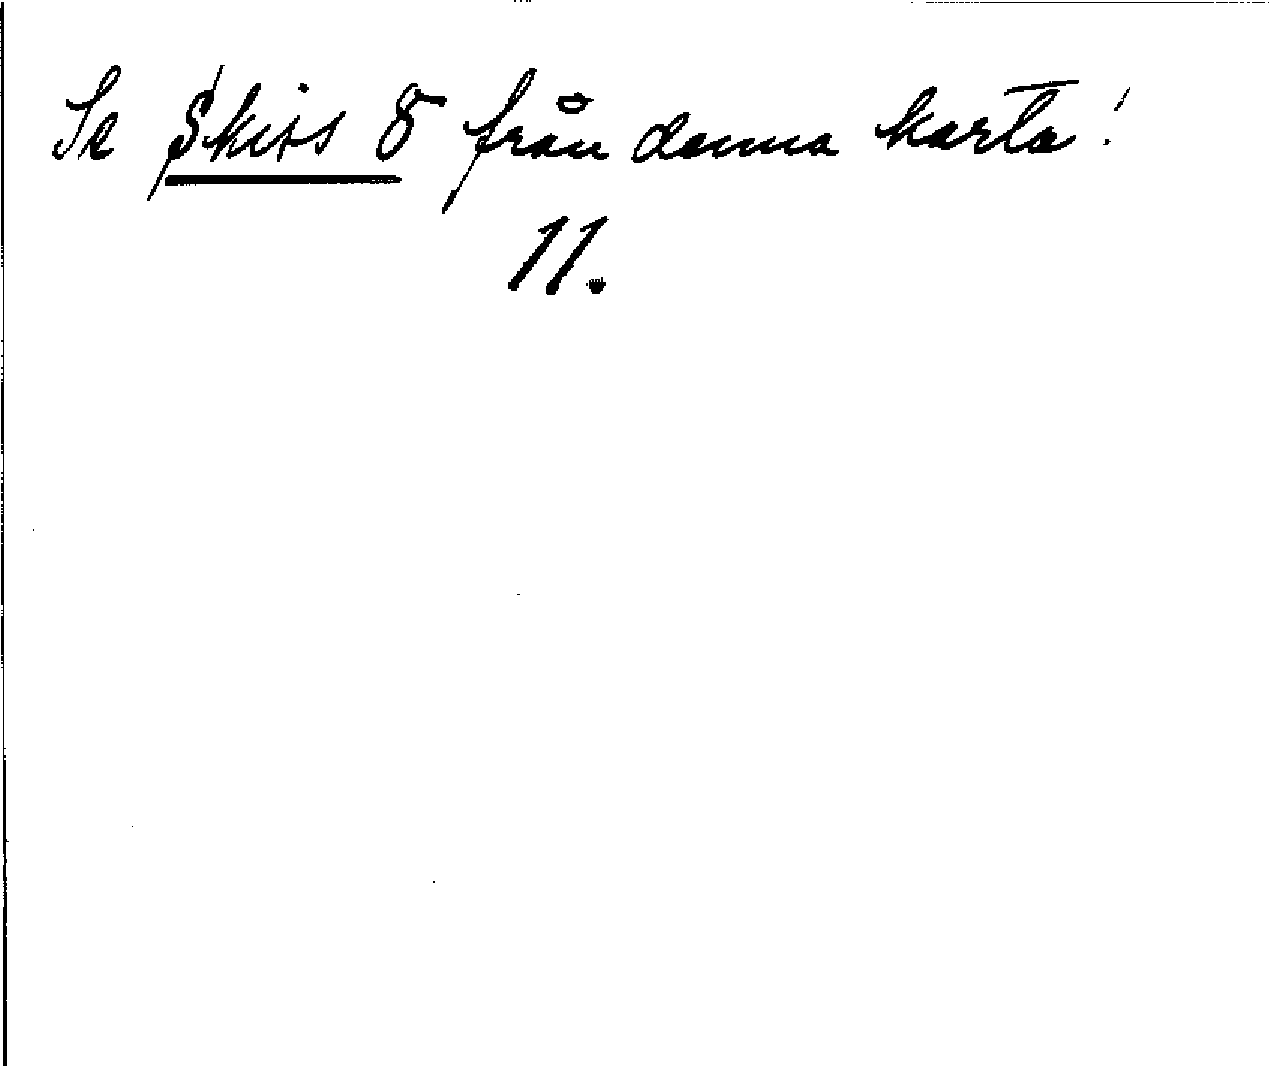 Se Skiss 8 från denna karta!
11.